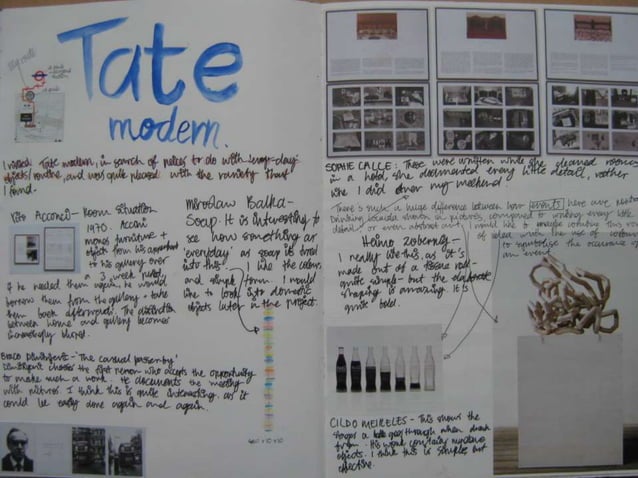 Tate
modern.
I visited Tate modern, in search of pieces to do with 'every-day'
objects/routine, and was quite pleased with the variety that
I found.
Vito Acconci - Room Situation
1970. Acconci
moves furniture +
objects from his apartment
to his gallery over
a 3 week period.
If he needed them again, he would
borrow them from the gallery + take
them back afterwards. The distinction
between home and gallery becomes
increasingly blurred.
Miroslaw Balka -
Soap. It is interesting to
see how something as
'everyday' as soap is bred
into this. I like the colours
and simple form. I would
like to look into domestic
objects later in the project.
Braco Dimitrijevic - 'The casual passer by'
Dimitrijevic chooses the first person who accepts the opportunity
to make such a work. It documents the meeting
with pictures. I think this is quite interesting, as it
could be easily done again and again.
SOPHIE CALLE: These were written while she cleaned rooms
in a hotel, she documented every little detail, rather
like I did over my weekend.
There's such a huge difference between how events here are
shown in pictures, compared to writing every little
detail, or even abstract. I would like to maybe
idea
to symbolise the occurance of
an event.
Heimo zobernig -
I really like this, as it's
made out of a tissue roll -
quite simple - but the
shaping is amazing. It's
quite bold.
CILDO MEIRELES - This shows the
stages a bottle goes through when drank
from. His work contains
objects. I think this is simple, but
effective.